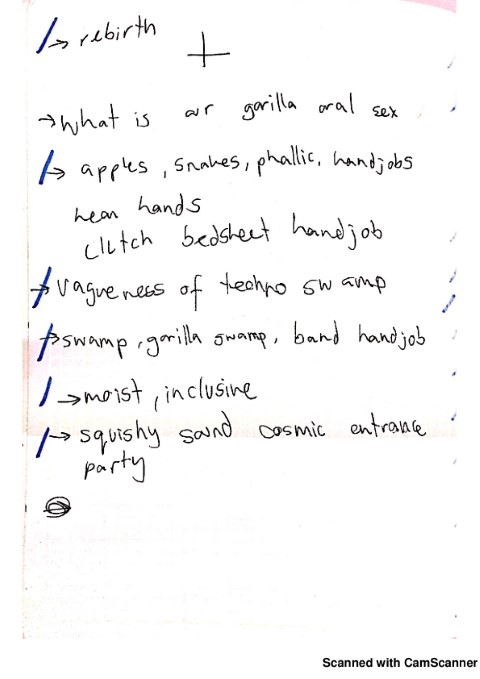 → rebirth
→ What is our gorilla oral sex
→ apples, snakes, phallic, handjobs
hands
clutch bedsheet handjob
→ Vagueness of techno swamp
→ swamp, gorilla swamp, band handjob
→ moist, inclusive
→ squishy sound cosmic entrance
party
Scanned with CamScanner